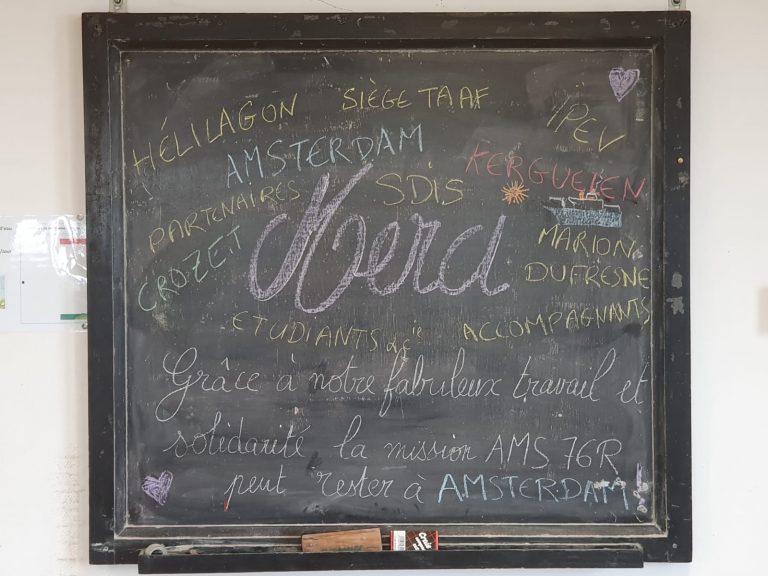 HÉLILAGON
SIÈGE TAAF
ÏPEV
AMSTERDAM
KERGUELEN
PARTENAIRES
SDIS
CROZET
Merci
MARION
DUFRESNE
ETUDIANTS
& Cie
ACCOMPAGNANTS
Grâce à notre fabuleux travail et
solidarité la mission AMS 76R
peut rester à AMSTERDAM